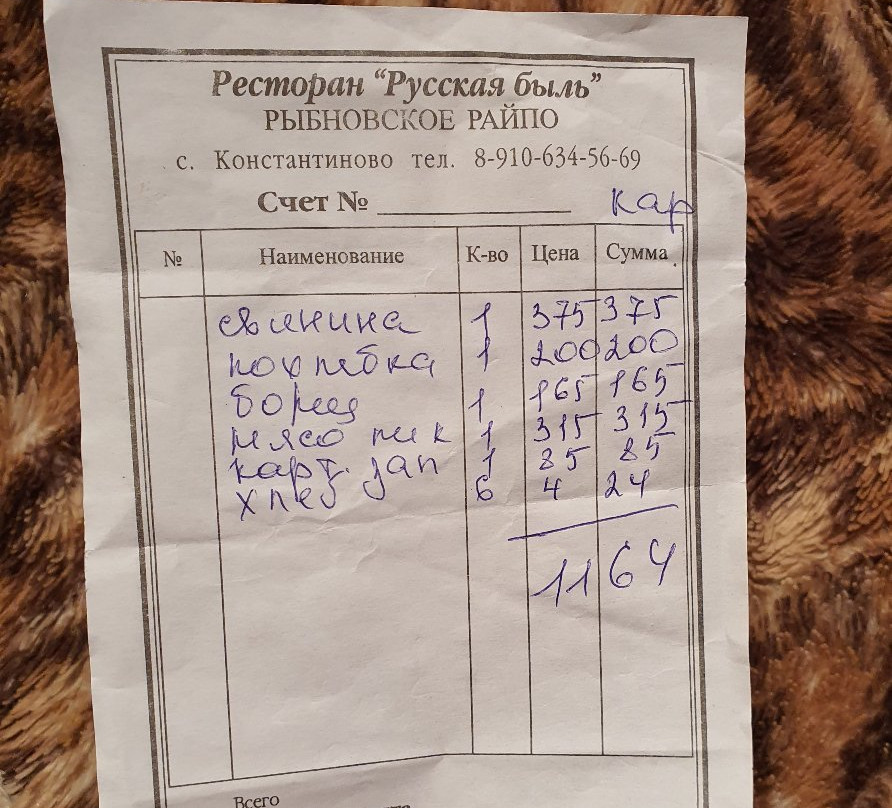 Ресторан “Русская быль”
РЫБНОВСКОЕ РАЙПО
с. Константиново тел. 8-910-634-56-69
Счет № ____________ кар
№ Наименование К-во Цена Сумма
свинина 1 375 375
похлебка 1 200 200
борщ 1 165 165
мясо пик 1 315 315
карт. зап 1 85 85
хлеб 6 4 24
1164
Всего